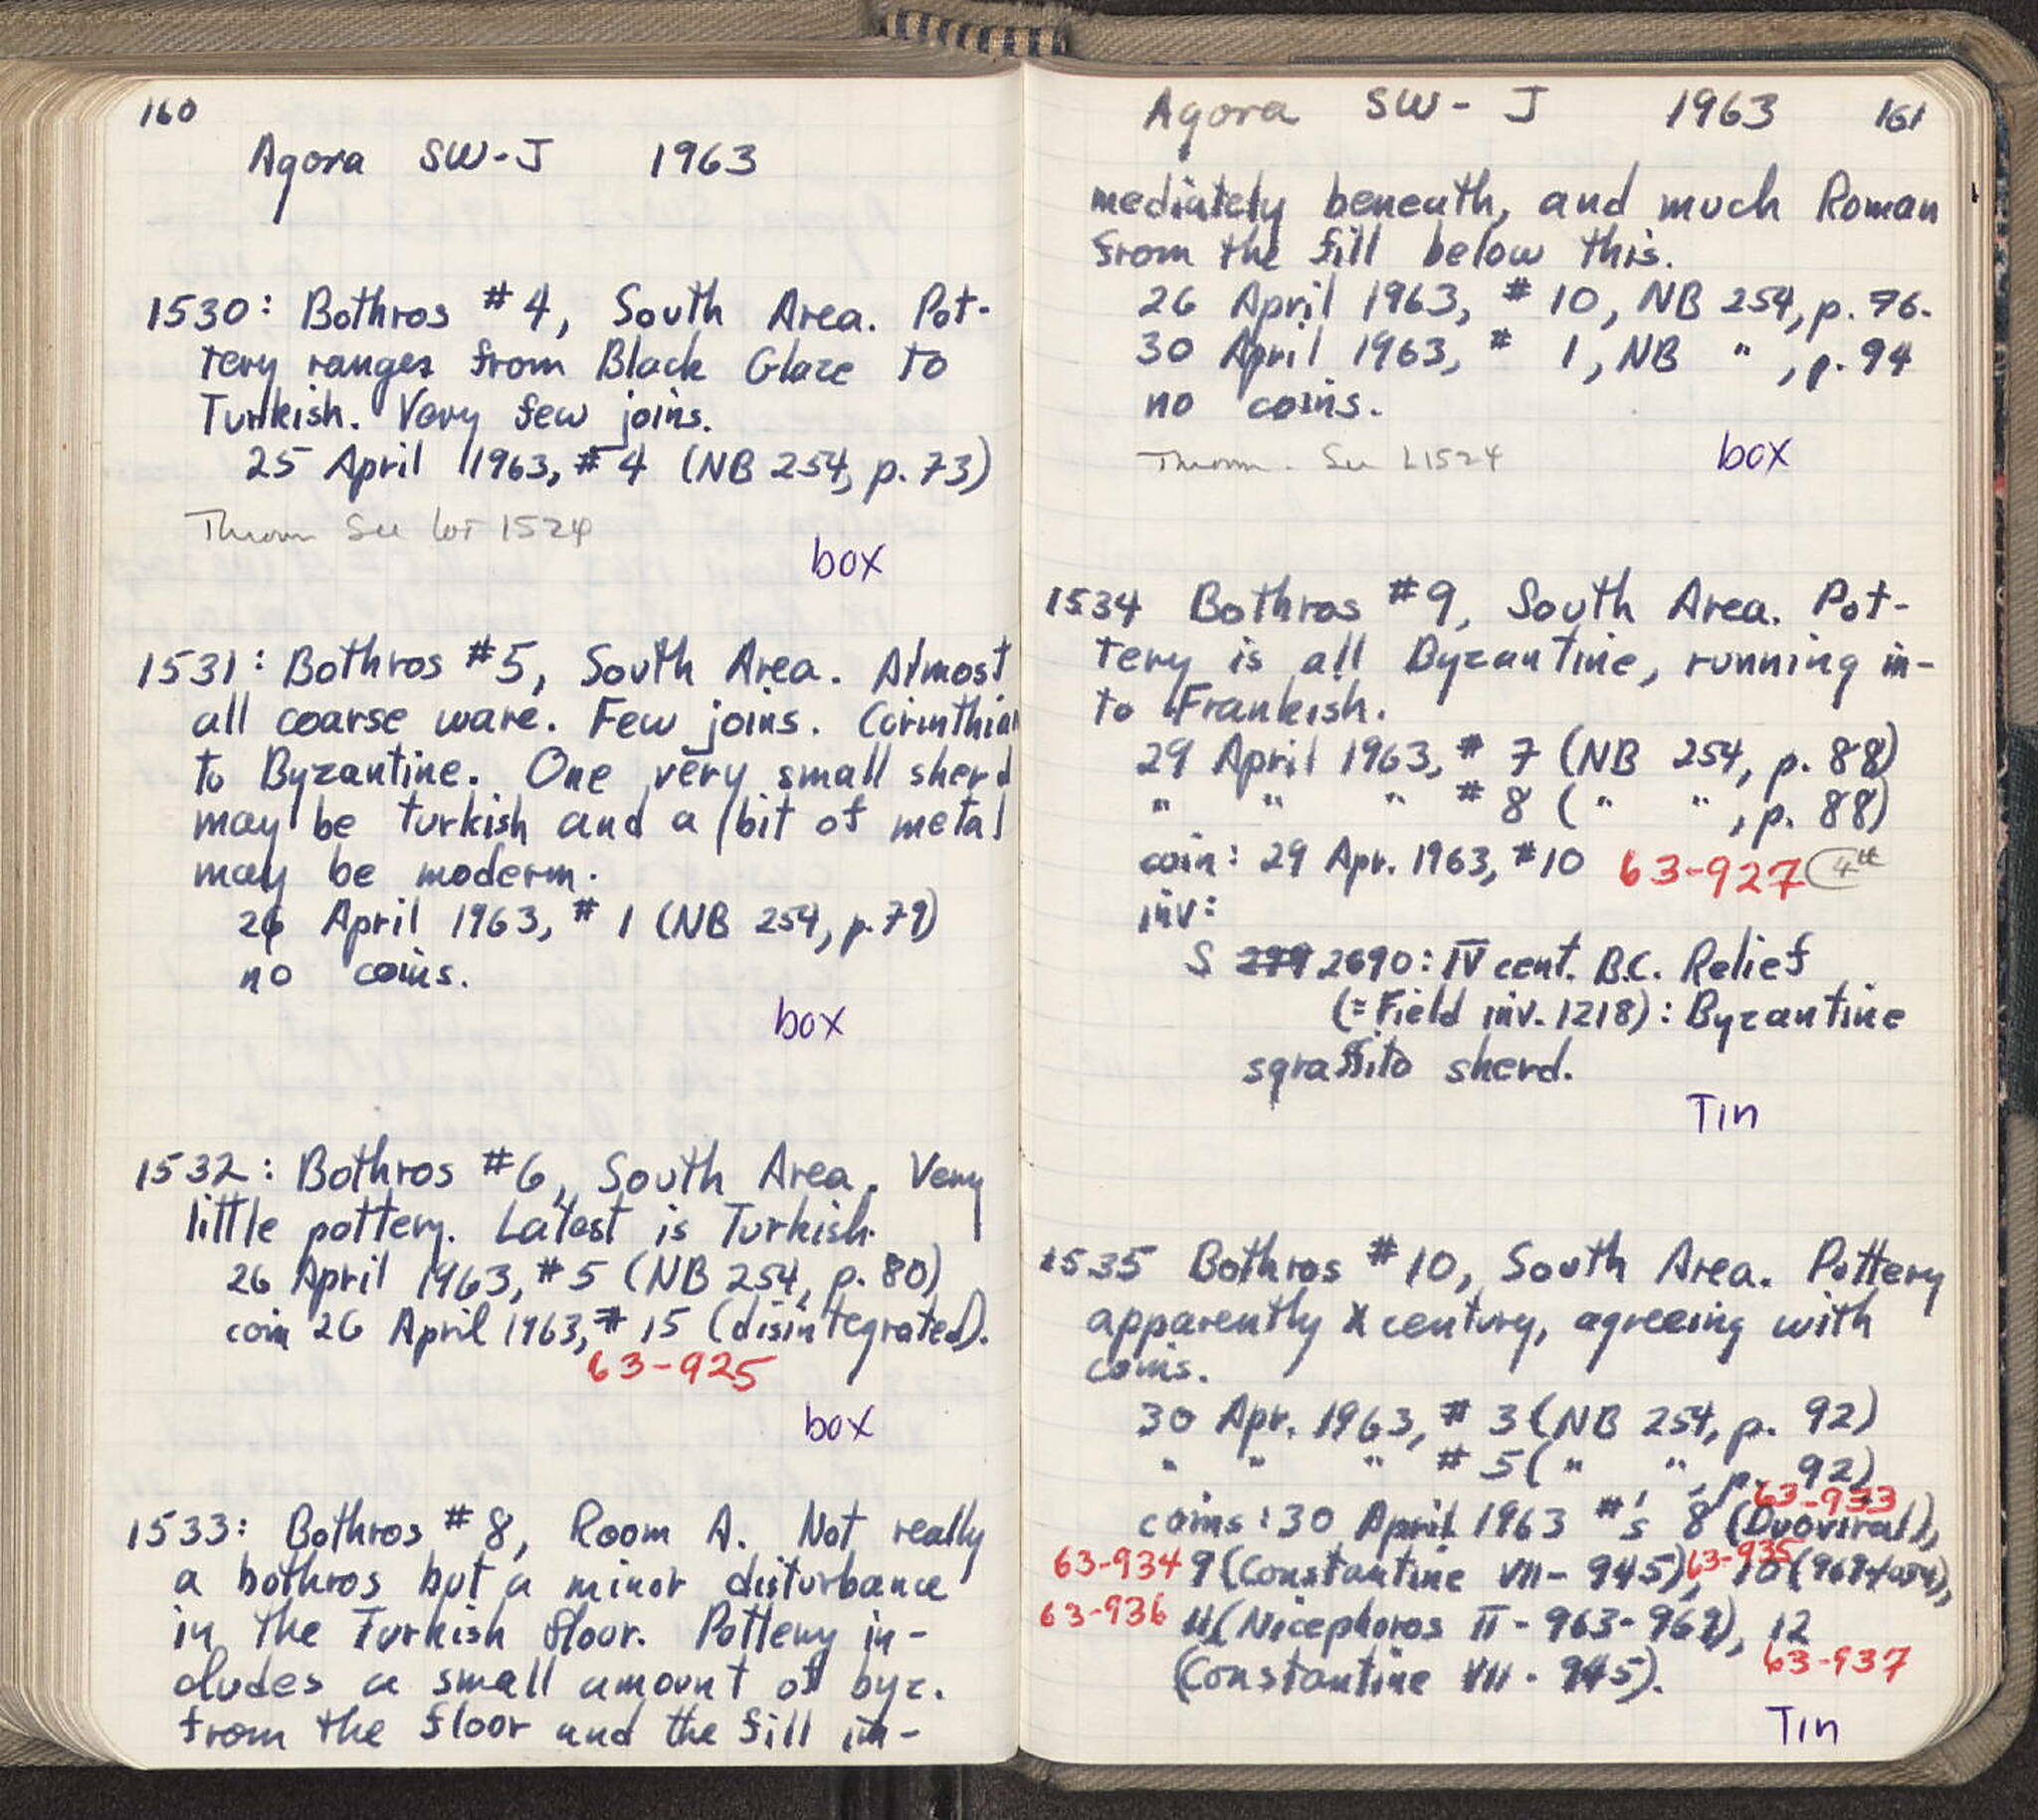 160
Agora SW-J 1963
1530: Bothros #4, South Area. Pot-
tery ranges from Black Glaze to
Turkish. Very few joins.
25 April 1963, #4 (NB 254, p. 73)
Throm See lot 1524
box
1531: Bothros #5, South Area. Almost
all coarse ware. Few joins. Corinthian
to Byzantine. One very small sherd
may be turkish and a bit of metal
may be modern.
26 April 1963, # 1 (NB 254, p. 79)
no coins.
box
1532: Bothros #6, South Area. Very
little pottery. Latest is Turkish.
26 April 1963, #5 (NB 254, p. 80)
coin 26 April 1963, # 15 (disintegrated).
63-925
box
1533: Bothros #8, Room A. Not really
a bothros but a minor disturbance
in the Turkish floor. Pottery in-
cludes a small amount of byz.
from the floor and the fill im-
Agora SW-J 1963 161
mediately beneath, and much Roman
from the fill below this.
26 April 1963, # 10, NB 254, p. 76.
30 April 1963, # 1, NB " , p. 94
no coins.
Throm. See L1524
box
1534 Bothros #9, South Area. Pot-
tery is all Byzantine, running in-
to Frankish.
29 April 1963, # 7 (NB 254, p. 88)
" " " # 8 ( " " , p. 88)
coin: 29 Apr. 1963, #10 63-927 4th
inv:
S 2690: IV cent. B.C. Relief
(= Field inv. 1218): Byzantine
sgraffito sherd.
Tin
1535 Bothros #10, South Area. Pottery
apparently X century, agreeing with
coins.
30 Apr. 1963, # 3 (NB 254, p. 92)
" " " # 5 ( " " , p. 92)
63-933
coins: 30 April 1963 #'s 8 (Duoviral),
63-934 9 (Constantine VII - 945), 63-935 10
63-936 11 (Nicephoros II - 963-969), 12
(Constantine VII - 945). 63-937
Tin